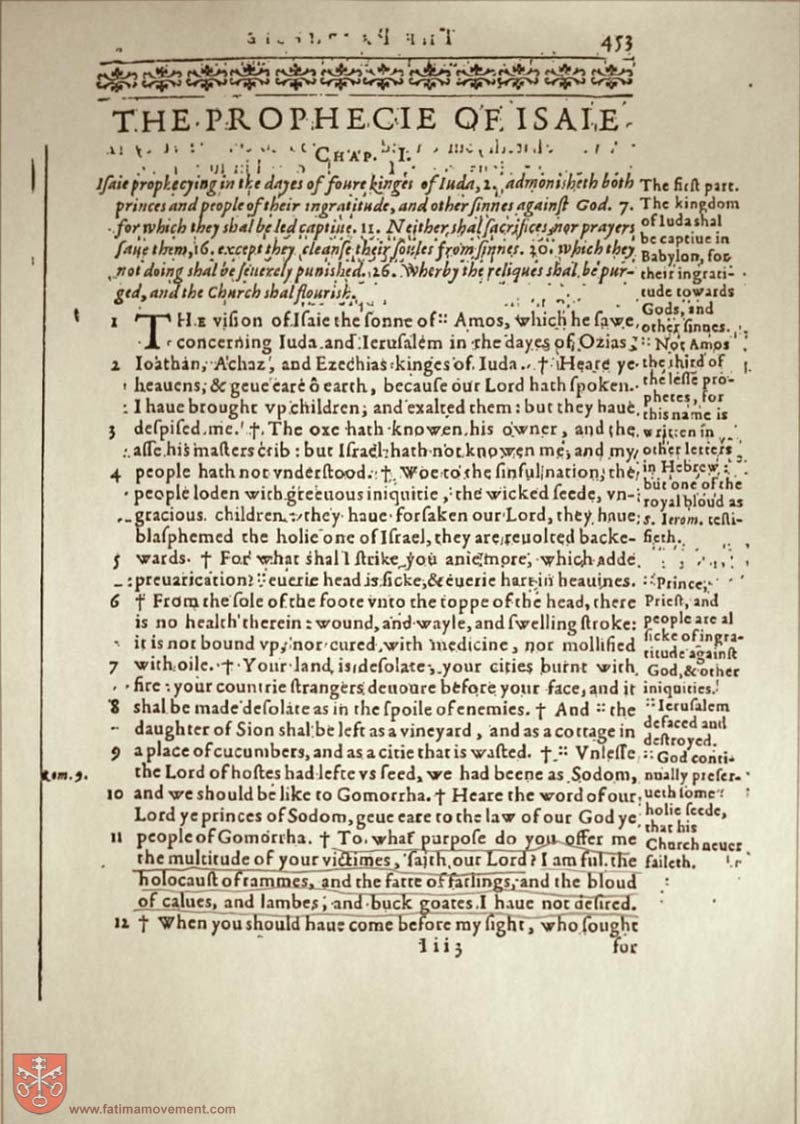 453
THE PROPHECIE OF ISAIE
CHAP. I.
Iſaie prophecying in the dayes of foure kinges of Iuda, 2. admonisheth both
princes and people of their ingratitude, and other ſinnes againſt God. 7.
for which they ſhal be led captiue. 11. Neither ſhal ſacrifices, nor prayers
ſaue them, 16. except they cleanſe their ſoules from ſinnes. 20. which they
not doing ſhal be ſeuerely puniſhed. 26. Wherby the reliques ſhal be pur-
ged, and the Church ſhal flouriſh.
1 THE viſion of Iſaie the ſonne of :: Amos, which he ſawe
concerning Iuda and Ieruſalem in the dayes of Ozias,
2 Ioathan, Achaz, and Ezechias kinges of Iuda. † Heare ye
heauens, & geue eare ô earth, becauſe our Lord hath ſpoken.
I haue brought vp children, and exalted them: but they haue
3 deſpiſed me. † The oxe hath knowen his owner, and the
aſſe his maſters crib: but Iſrael hath not knowen me, and my
4 people hath not vnderſtood. † Woe to the ſinful nation, the
people loden with greeuous iniquitie, the wicked ſeede, vn-
gracious children: they haue forſaken our Lord, they haue
blaſphemed the holie one of Iſrael, they are reuolted backe-
5 wards. † For what ſhal I ſtrike you anie more, which adde
preuarication? :: euerie head is ſicke, & euerie hart in heauines.
6 † From the ſole of the foote vnto the toppe of the head, there
is no health therein: wound, and wayle, and ſwelling ſtroke:
it is not bound vp, nor cured with medicine, nor mollified
7 with oile. † Your land is deſolate, your cities burnt with
fire: your countrie ſtrangers deuoure before your face, and it
8 ſhal be made deſolate as in the ſpoile of enemies. † And :: the
daughter of Sion ſhal be left as a vineyard, and as a cottage in
9 a place of cucumbers, and as a citie that is waſted. † :: Vnleſſe
the Lord of hoſtes had lefte vs ſeed, we had beene as Sodom,
10 and we ſhould be like to Gomorrha. † Heare the word of our
Lord ye princes of Sodom, geue eare to the law of our God ye
11 people of Gomorrha. † To what purpoſe do you offer me
the multitude of your victimes, ſaith our Lord? I am ful. the
holocauſt of rammes, and the fatte of fatlings, and the bloud
of calues, and lambes, and buck goates I haue not deſired.
12 † When you ſhould haue come before my ſight, who ſought
Iii3
for
The firſt part.
The kingdom
of Iuda shal
be captiue in
Babylon, for
their ingrati-
tude towards
Gods, and
other ſinnes.
:: Not Amos
the third of
the leſſe pro-
phetes, for
this name is
written in
other letters
in Hebrew:
but one of the
royal bloud as
S. Ierom. teſti-
fieth.
:: Prince,
Prieſt, and
people are al
ſicke of ingra-
titude againſt
God, & other
iniquities.
:: Ieruſalem
defaced and
deſtroyed.
:: God conti-
nually preſer-
ueth ſome
holie ſeede,
that his
Church neuer
faileth.
Rom. 9.
www.fatimamovement.com